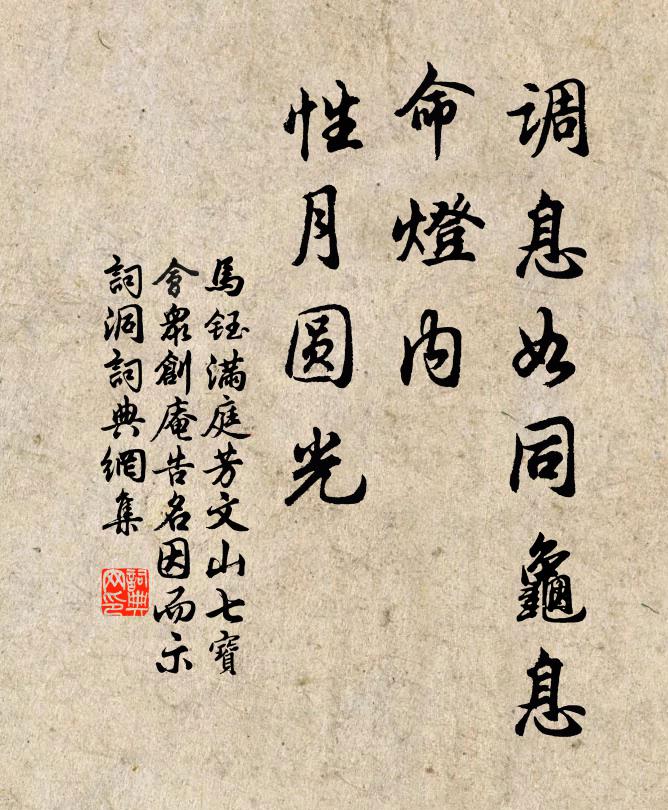 调息如同龜息
命燈内
性月圆光
馬鈺滿庭芳文山七寶
會衆創庵告名因而示
詞洞詞典網集
詞典
网印